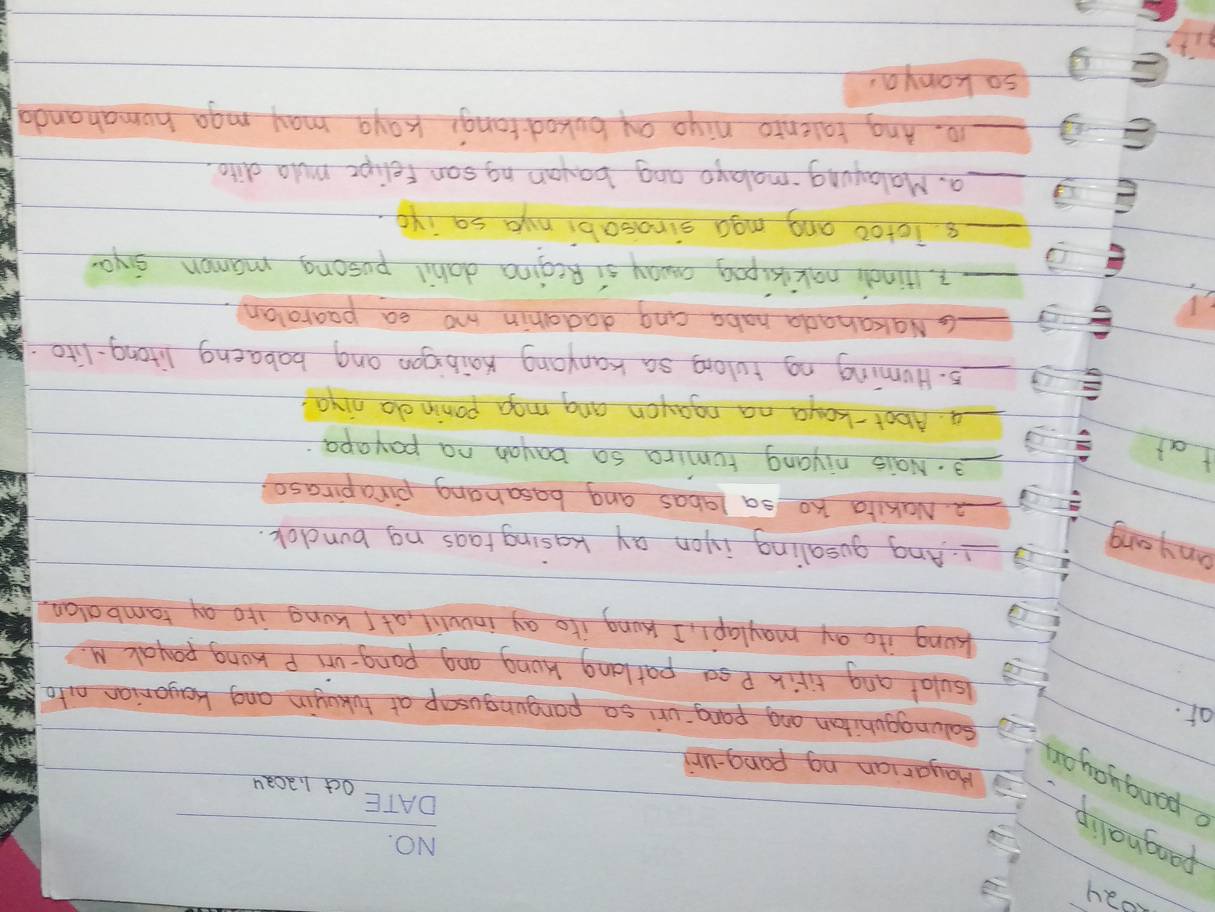 NO.
DATE Oct 1, 2024
Kayarian ng pang-uri
Salungguhitan ang pang-uri sa pangungusap at tukuyin ang kayarian nito
Isulat ang titik P sa patlang kung ang pang-uri P kung payak M.
kung ito ay maylapi, I kung ito ay inuulit, at T kung ito ay tambalan.
1. Ang gusaling iyon ay kasing taas ng bundok.
2. Nakita ko sa labas ang basahang pirapiraso.
3. Nais niyang tumira sa bayan na payapa.
4. Abot-kaya na ngayon ang mga paninda niya.
5. Huming ng tulong sa kanyang kaibigan ang babaeng litong-lito.
6 Nakahada naba ang dadahin mo sa paaralan.
7. Hindi nakikipag away si Regina dahil pusong mamon siya.
8. Totoo ang mga sinasabi nya sa iyo.
a. Malayung-malayo ang bayan ng san Felipe mula dito.
10. Ang talento niya ay bukod-tangi kaya may mga humahanda
sa kanya.
2024
panghalip
pangyayari
at.
anyang
t at
git.